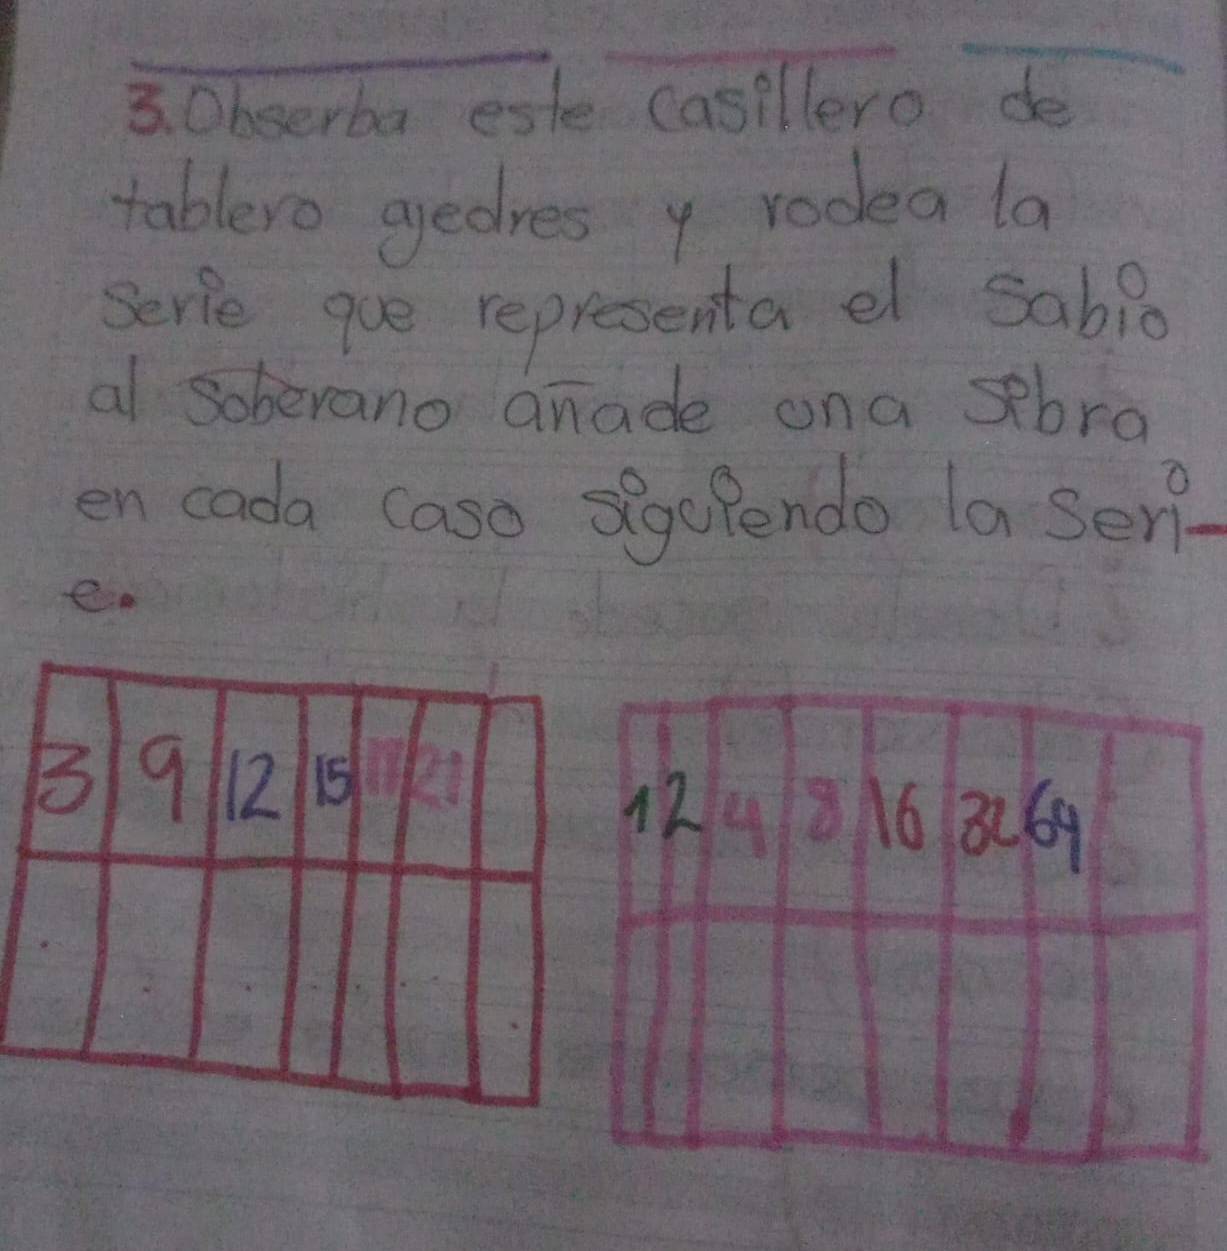 3. Obserba este casillero de
tablero ajedres y rodea la
serie que representa el sabio
al soberano añade una sibra
en cada caso siguiendo la seri-
e.
3 9 12 15 21
1 2 4 8 16 32 64